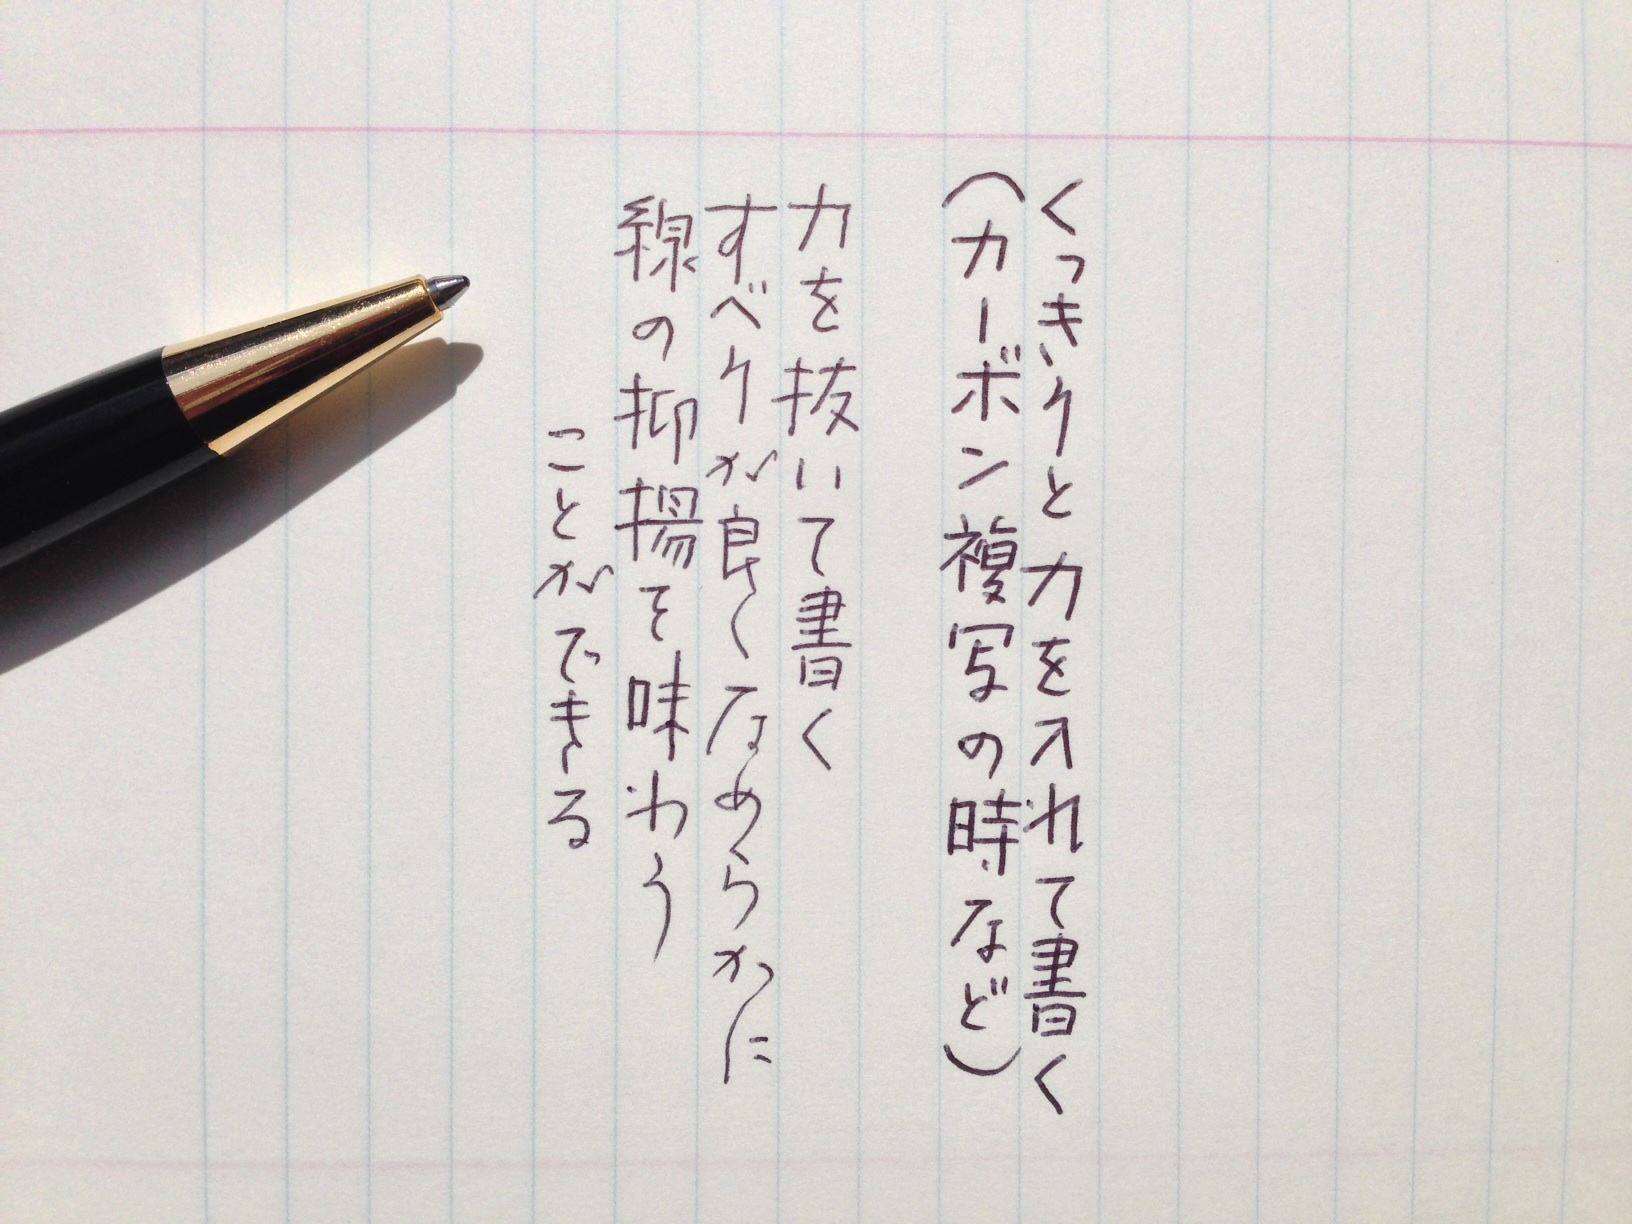 くっきりと力を入れて書く
（カーボン複写の時など）
力を抜いて書く
すべりが良くなめらかに
線の抑揚を味わう
ことができる